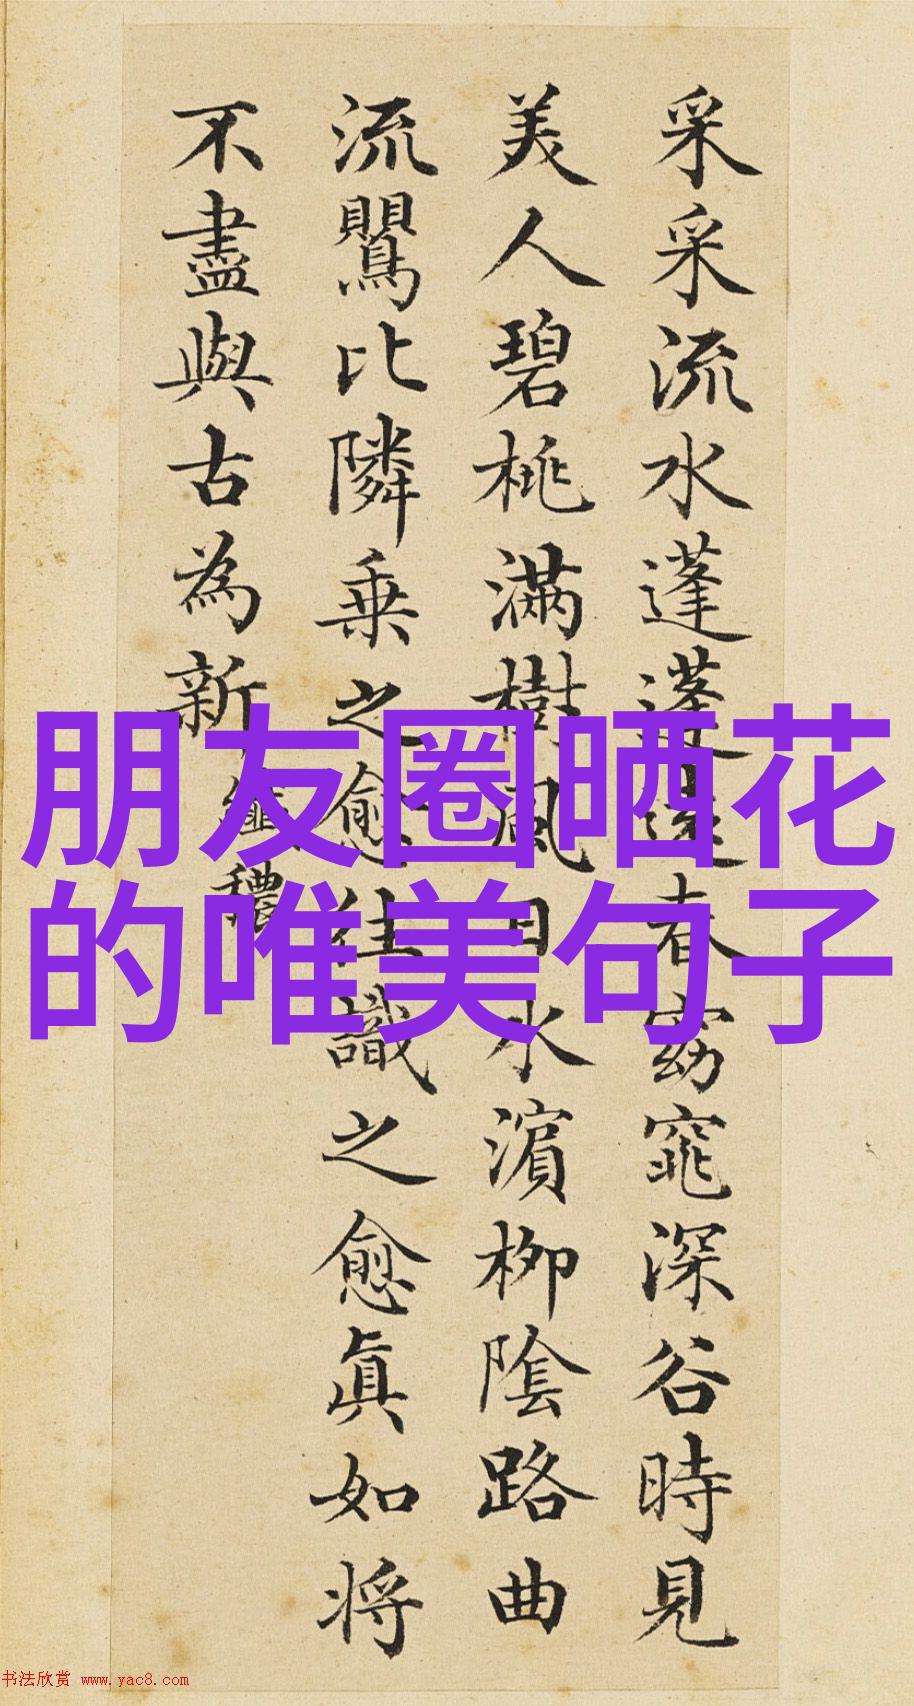 采采流水蓬蓬遠春窈窕深谷時見
美人碧桃滿樹風日水濱柳隂路曲
流鸎比隣乗之愈往識之愈眞如将
不盡與古為新 纖穠
朋友圈晒花
的唯美句子
书法欣赏 www.yac8.com